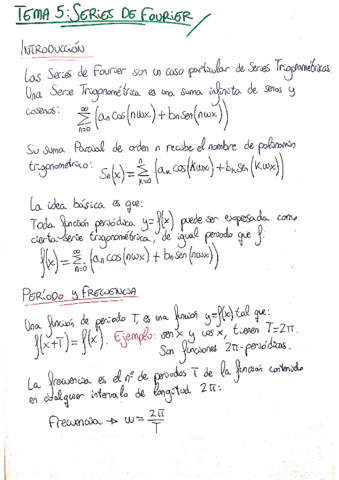 TEMA 5: SERIES DE FOURIER
INTRODUCCIÓN
Las Series de Fourier son un caso particular de Series Trigonométricas.
Una Serie Trigonométrica es una suma infinita de senos y
cosenos: ∑_{n=0}^{∞} (a_n cos(nωx) + b_n sen(nωx))
Su suma Parcial de orden n recibe el nombre de polinomio
trigonométrico: S_n(x) = ∑_{k=0}^{n} (a_k cos(kωx) + b_k sen(kωx))
La idea básica es que:
Toda función periódica y=f(x) puede ser expresada como
cierta serie trigonométrica, de igual periodo que f:
f(x) = ∑_{n=0}^{∞} (a_n cos(nωx) + b_n sen(nωx))
PERÍODO Y FRECUENCIA
Una función de periodo T, es una función y=f(x) tal que:
f(x+T) = f(x). Ejemplo: sen x y cos x, tienen T=2π.
Son funciones 2π-periódicas.
La frecuencia es el nº de periodos T de la función contenido
en cualquier intervalo de longitud 2π:
Frecuencia → ω = 2π/T